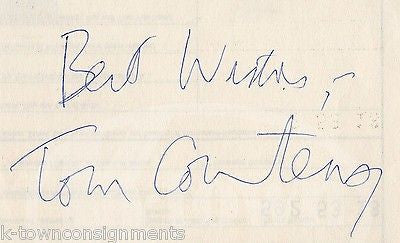 Best Wishes,
Tom Courtenay
k-townconsignments